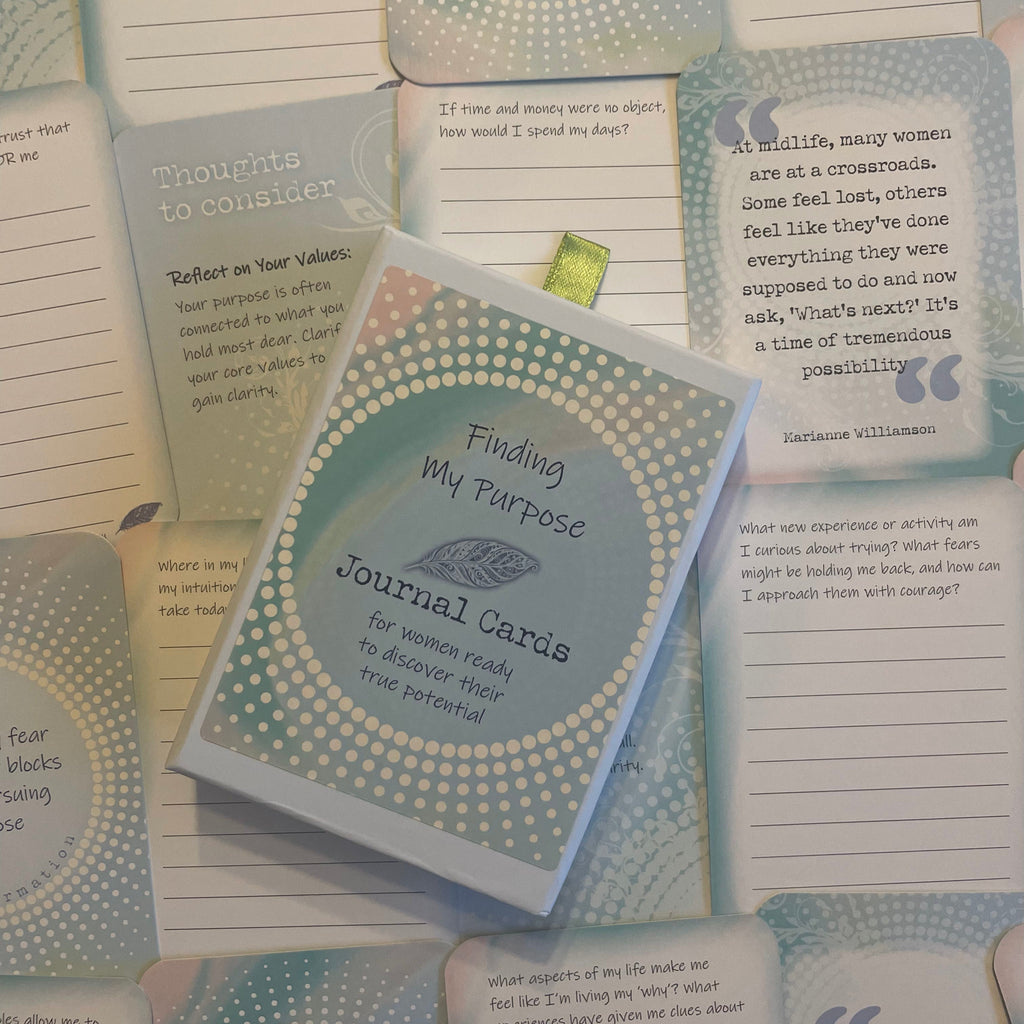 trust that
OR me
Thoughts
to consider
Reflect on Your Values:
Your purpose is often
connected to what you
hold most dear. Clarif
your core values to
gain clarity.
If time and money were no object,
how would I spend my days?
“
At midlife, many women
are at a crossroads.
Some feel lost, others
feel like they've done
everything they were
supposed to do and now
ask, 'What's next?' It's
a time of tremendous
possibility
“
Marianne Williamson
Finding
My Purpose
Journal Cards
for women ready
to discover their
true potential
Where in my
my intuition
take toda
What new experience or activity am
I curious about trying? What fears
might be holding me back, and how can
I approach them with courage?
fear
blocks
rsuing
ose
rmation
all.
rity.
What aspects of my life make me
feel like I'm living my 'why'? What
have given me clues about
allow me to